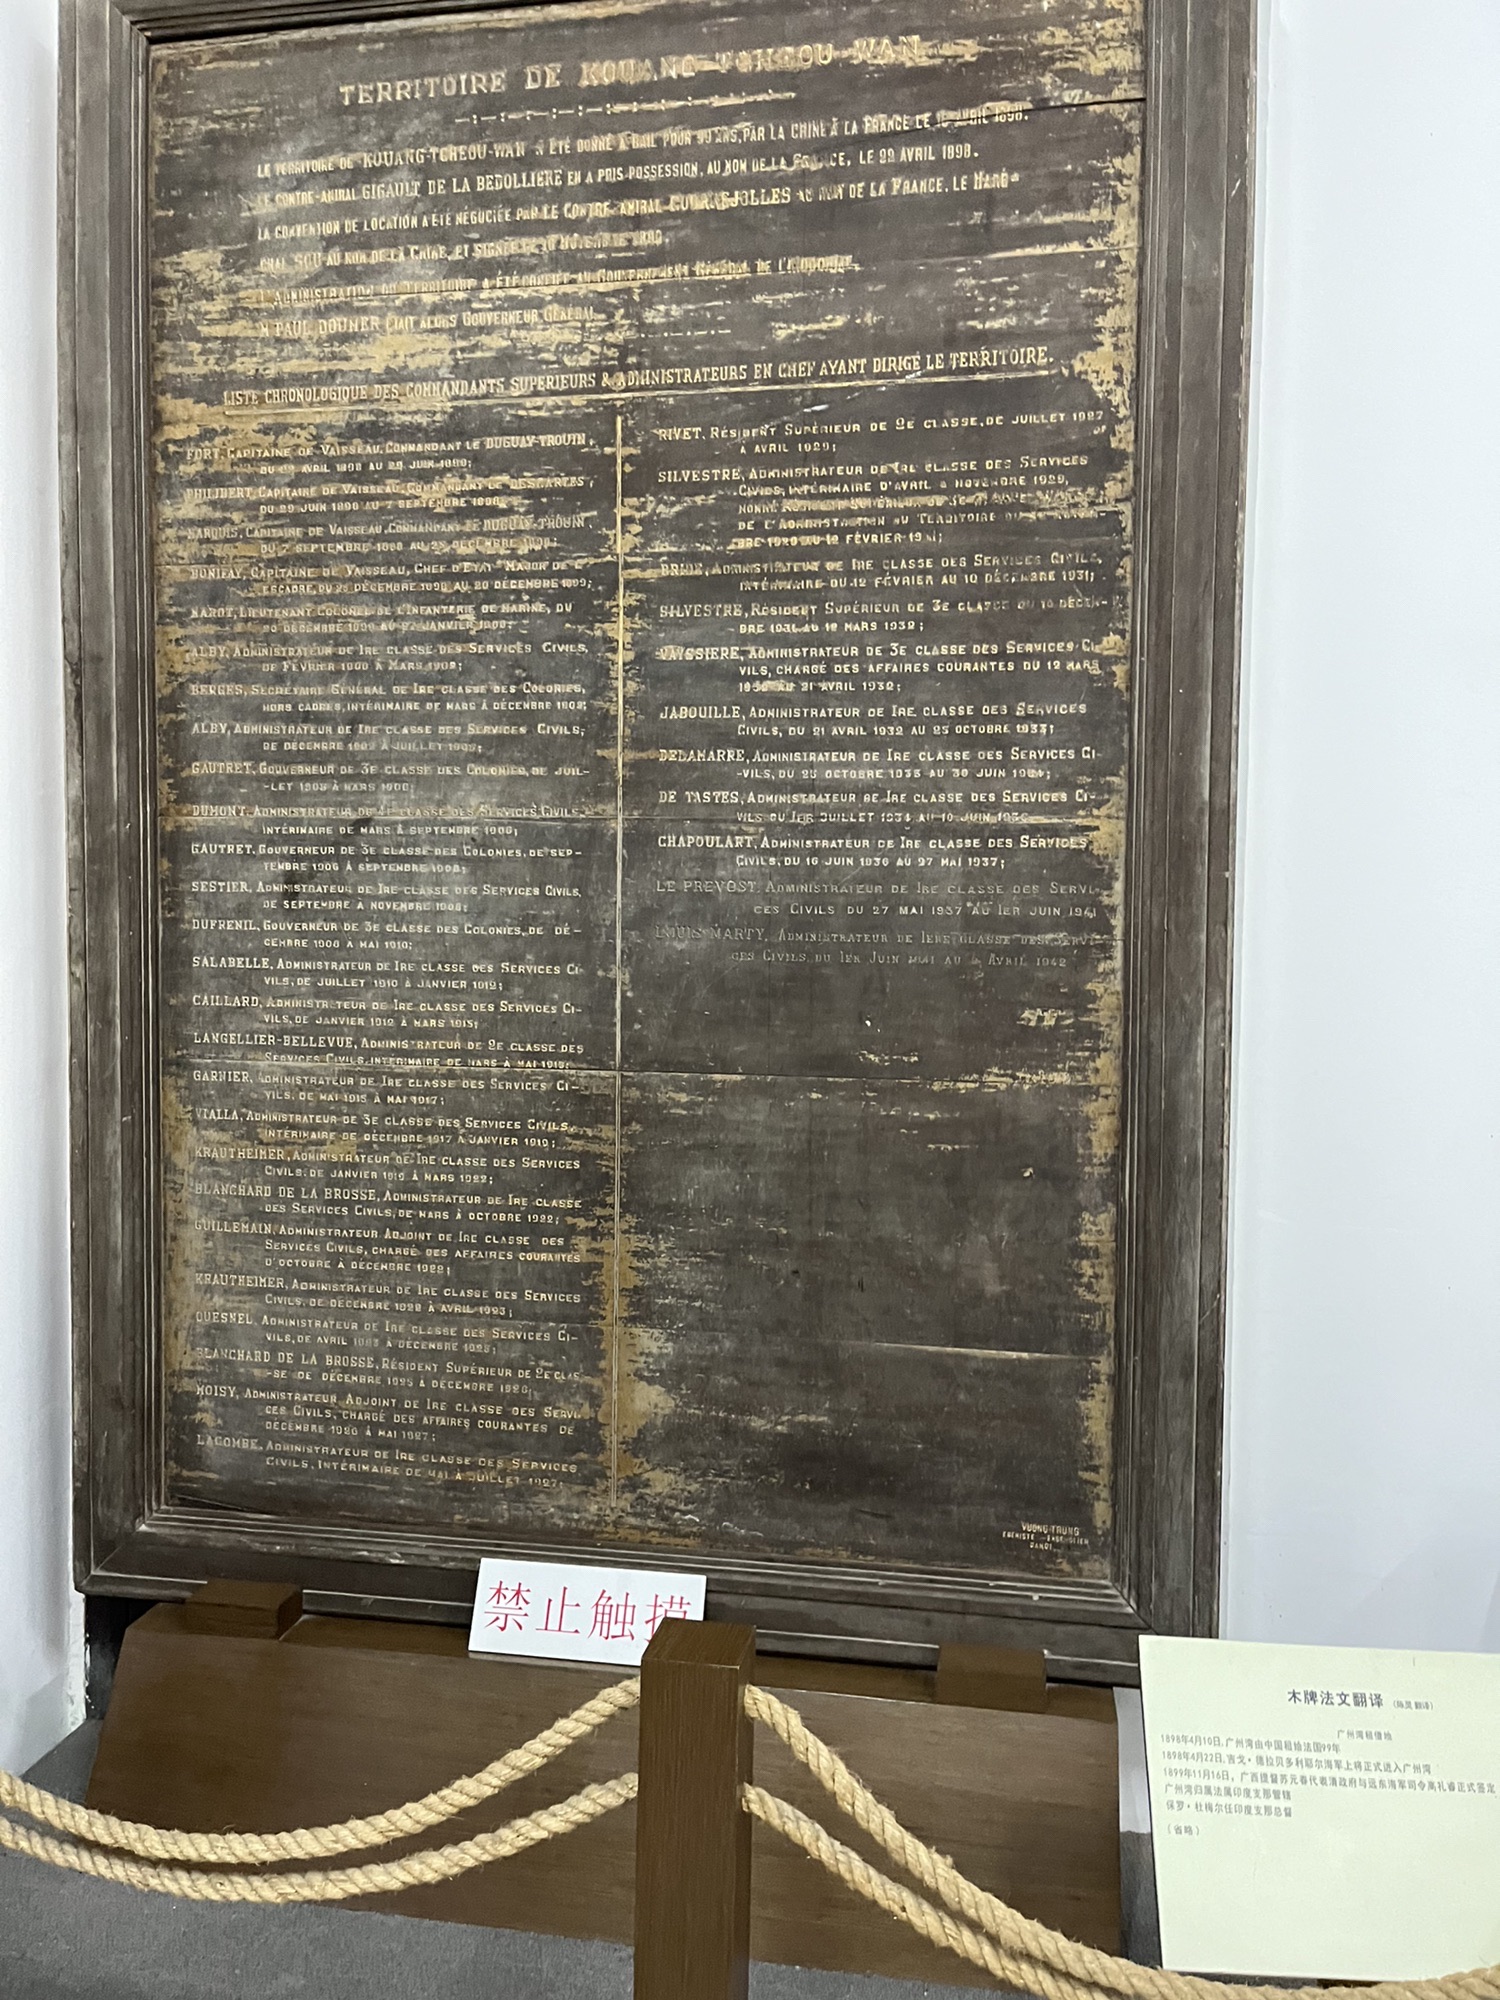 TERRITOIRE DE KOUANG-TCHEOU-WAN
LE TERRITOIRE DE KOUANG-TCHEOU-WAN A ÉTÉ DONNÉ À BAIL POUR 99 ANS, PAR LA CHINE À LA FRANCE LE AVRIL 1898.
LE CONTRE-AMIRAL GIGAULT DE LA BEDOLLIERE EN A PRIS POSSESSION, AU NOM DE LA FRANCE, LE 22 AVRIL 1898.
LA CONVENTION DE LOCATION A ÉTÉ NÉGOCIÉE PAR LE CONTRE-AMIRAL COURREJOLLES AU NOM DE LA FRANCE, LE MARÉ-
CHAL SOU AU NOM DE LA CHINE, ET SIGNÉE LE NOVEMBRE
L'ADMINISTRATION DU TERRITOIRE A ÉTÉ CONFIÉE AU GOUVERNEMENT GÉNÉRAL DE L'INDOCHINE.
M PAUL DOUMER ÉTAIT ALORS GOUVERNEUR GÉNÉRAL.
LISTE CHRONOLOGIQUE DES COMMANDANTS SUPERIEURS & ADMINISTRATEURS EN CHEF AYANT DIRIGÉ LE TERRITOIRE.
FORT, CAPITAINE DE VAISSEAU, COMMANDANT LE DUGUAY-TROUIN,
DU AVRIL 1898 AU JUIN
PHILIBERT, CAPITAINE DE VAISSEAU, COMMANDANT LE DESCARTES,
DU 29 JUIN AU 7 SEPTEMBRE
MARQUIS, CAPITAINE DE VAISSEAU, COMMANDANT LE DUGUAY-TROUIN,
DU 7 SEPTEMBRE AU DÉCEMBRE
BONIFAY, CAPITAINE DE VAISSEAU, CHEF D'ETAT MAJOR DE L'
ESCADRE, DU DÉCEMBRE AU 20 DÉCEMBRE 1899;
MAROT, LIEUTENANT COLONEL DE L'INFANTERIE DE MARINE, DU
20 DÉCEMBRE AU 27 JANVIER
ALBY, ADMINISTRATEUR DE 1RE CLASSE DES SERVICES CIVILS,
DE FÉVRIER 1900 À MARS
BERGES, SECRÉTAIRE GÉNÉRAL DE 1RE CLASSE DES COLONIES,
HORS CADRES, INTÉRIMAIRE DE MARS À DÉCEMBRE
ALBY, ADMINISTRATEUR DE 1RE CLASSE DES SERVICES CIVILS,
DE DÉCEMBRE À JUILLET
GAUTRET, GOUVERNEUR DE 3E CLASSE DES COLONIES, DE JUIL-
-LET À MARS
DUMONT, ADMINISTRATEUR DE CLASSE DES SERVICES CIVILS,
INTÉRIMAIRE DE MARS À SEPTEMBRE 1906;
GAUTRET, GOUVERNEUR DE 3E CLASSE DES COLONIES, DE SEP-
TEMBRE 1906 À SEPTEMBRE 1908;
SESTIER, ADMINISTRATEUR DE 1RE CLASSE DES SERVICES CIVILS,
DE SEPTEMBRE À NOVEMBRE 1908;
DUFRENIL, GOUVERNEUR DE 3E CLASSE DES COLONIES, DE DÉ-
CEMBRE 1908 À MAI 1910;
SALABELLE, ADMINISTRATEUR DE 1RE CLASSE DES SERVICES CI-
VILS, DE JUILLET 1910 À JANVIER 1912;
CAILLARD, ADMINISTRATEUR DE 1RE CLASSE DES SERVICES CI-
VILS, DE JANVIER 1912 À MARS 1915;
LANGELLIER-BELLEVUE, ADMINISTRATEUR DE 2E CLASSE DES
SERVICES CIVILS, INTÉRIMAIRE DE MARS À MAI 1915;
GARNIER, ADMINISTRATEUR DE 1RE CLASSE DES SERVICES CI-
VILS, DE MAI 1915 À MAI 1917;
VIALLA, ADMINISTRATEUR DE 3E CLASSE DES SERVICES CIVILS,
INTÉRIMAIRE DE DÉCEMBRE 1917 À JANVIER 1919;
KRAUTHEIMER, ADMINISTRATEUR DE 1RE CLASSE DES SERVICES
CIVILS, DE JANVIER 1919 À MARS 1922;
BLANCHARD DE LA BROSSE, ADMINISTRATEUR DE 1RE CLASSE
DES SERVICES CIVILS, DE MARS À OCTOBRE 1922;
GUILLEMAIN, ADMINISTRATEUR ADJOINT DE 1RE CLASSE DES
SERVICES CIVILS, CHARGÉ DES AFFAIRES COURANTES
D'OCTOBRE À DÉCEMBRE 1922;
KRAUTHEIMER, ADMINISTRATEUR DE 1RE CLASSE DES SERVICES
CIVILS, DE DÉCEMBRE 1922 À AVRIL 1923;
QUESNEL, ADMINISTRATEUR DE 1RE CLASSE DES SERVICES CI-
VILS, DE AVRIL 1923 À DÉCEMBRE 1925;
BLANCHARD DE LA BROSSE, RÉSIDENT SUPÉRIEUR DE 2E CLAS
-SE DE DÉCEMBRE 1925 À DÉCEMBRE 1926;
MOISY, ADMINISTRATEUR ADJOINT DE 1RE CLASSE DES SERVI
CES CIVILS, CHARGÉ DES AFFAIRES COURANTES DE
DÉCEMBRE 1926 À MAI 1927;
LACOMBE, ADMINISTRATEUR DE 1RE CLASSE DES SERVICES
CIVILS, INTÉRIMAIRE DE MAI À JUILLET 1927;
RIVET, RÉSIDENT SUPÉRIEUR DE 2E CLASSE, DE JUILLET 1927
À AVRIL 1929;
SILVESTRE, ADMINISTRATEUR DE 1RE CLASSE DES SERVICES
CIVILS, INTÉRIMAIRE D'AVRIL À NOVEMBRE 1929,
NOMMÉ RÉSIDENT SUPÉRIEUR DE 3E CLASSE
DE L'ADMINISTRATION DU TERRITOIRE DU
BRE 1929 AU 12 FÉVRIER 1931;
BRIDE, ADMINISTRATEUR DE 1RE CLASSE DES SERVICES CIVILS,
INTÉRIMAIRE DU 12 FÉVRIER AU 10 DÉCEMBRE 1931;
SILVESTRE, RÉSIDENT SUPÉRIEUR DE 3E CLASSE DU 10 DÉCEM-
BRE 1931 AU 12 MARS 1932;
VAYSSIERE, ADMINISTRATEUR DE 3E CLASSE DES SERVICES CI-
VILS, CHARGÉ DES AFFAIRES COURANTES DU 12 MARS
1932 AU 21 AVRIL 1932;
JABOUILLE, ADMINISTRATEUR DE 1RE CLASSE DES SERVICES
CIVILS, DU 21 AVRIL 1932 AU 25 OCTOBRE 1933;
DELAMARRE, ADMINISTRATEUR DE 1RE CLASSE DES SERVICES CI-
-VILS, DU 25 OCTOBRE 1933 AU 30 JUIN 1934;
DE TASTES, ADMINISTRATEUR DE 1RE CLASSE DES SERVICES CI-
VILS DU 1ER JUILLET 1934 AU JUIN 1936
CHAPOULART, ADMINISTRATEUR DE 1RE CLASSE DES SERVICES
CIVILS, DU 16 JUIN 1936 AU 27 MAI 1937;
LE PREVOST, ADMINISTRATEUR DE 1RE CLASSE DES SERVI-
CES CIVILS DU 27 MAI 1937 AU 1ER JUIN 1941
LOUIS MARTY, ADMINISTRATEUR DE 1ERE CLASSE DES SERVI-
CES CIVILS DU 1ER JUIN 1941 AU AVRIL 1942
VUONG-TRUNG
EBENISTE
HANOI
禁止触摸
木牌法文翻译
广州湾租借给
1898年4月10日,广州湾由中国租给法国99年
1898年4月22日,吉戈·德拉贝多利耶尔海军上将正式进入广州湾
1899年11月16日,广西提督苏元春代表清政府与远东海军司令高礼睿正式签定
广州湾归属法属印度支那管辖
保罗·杜梅尔任印度支那总督
(省略)